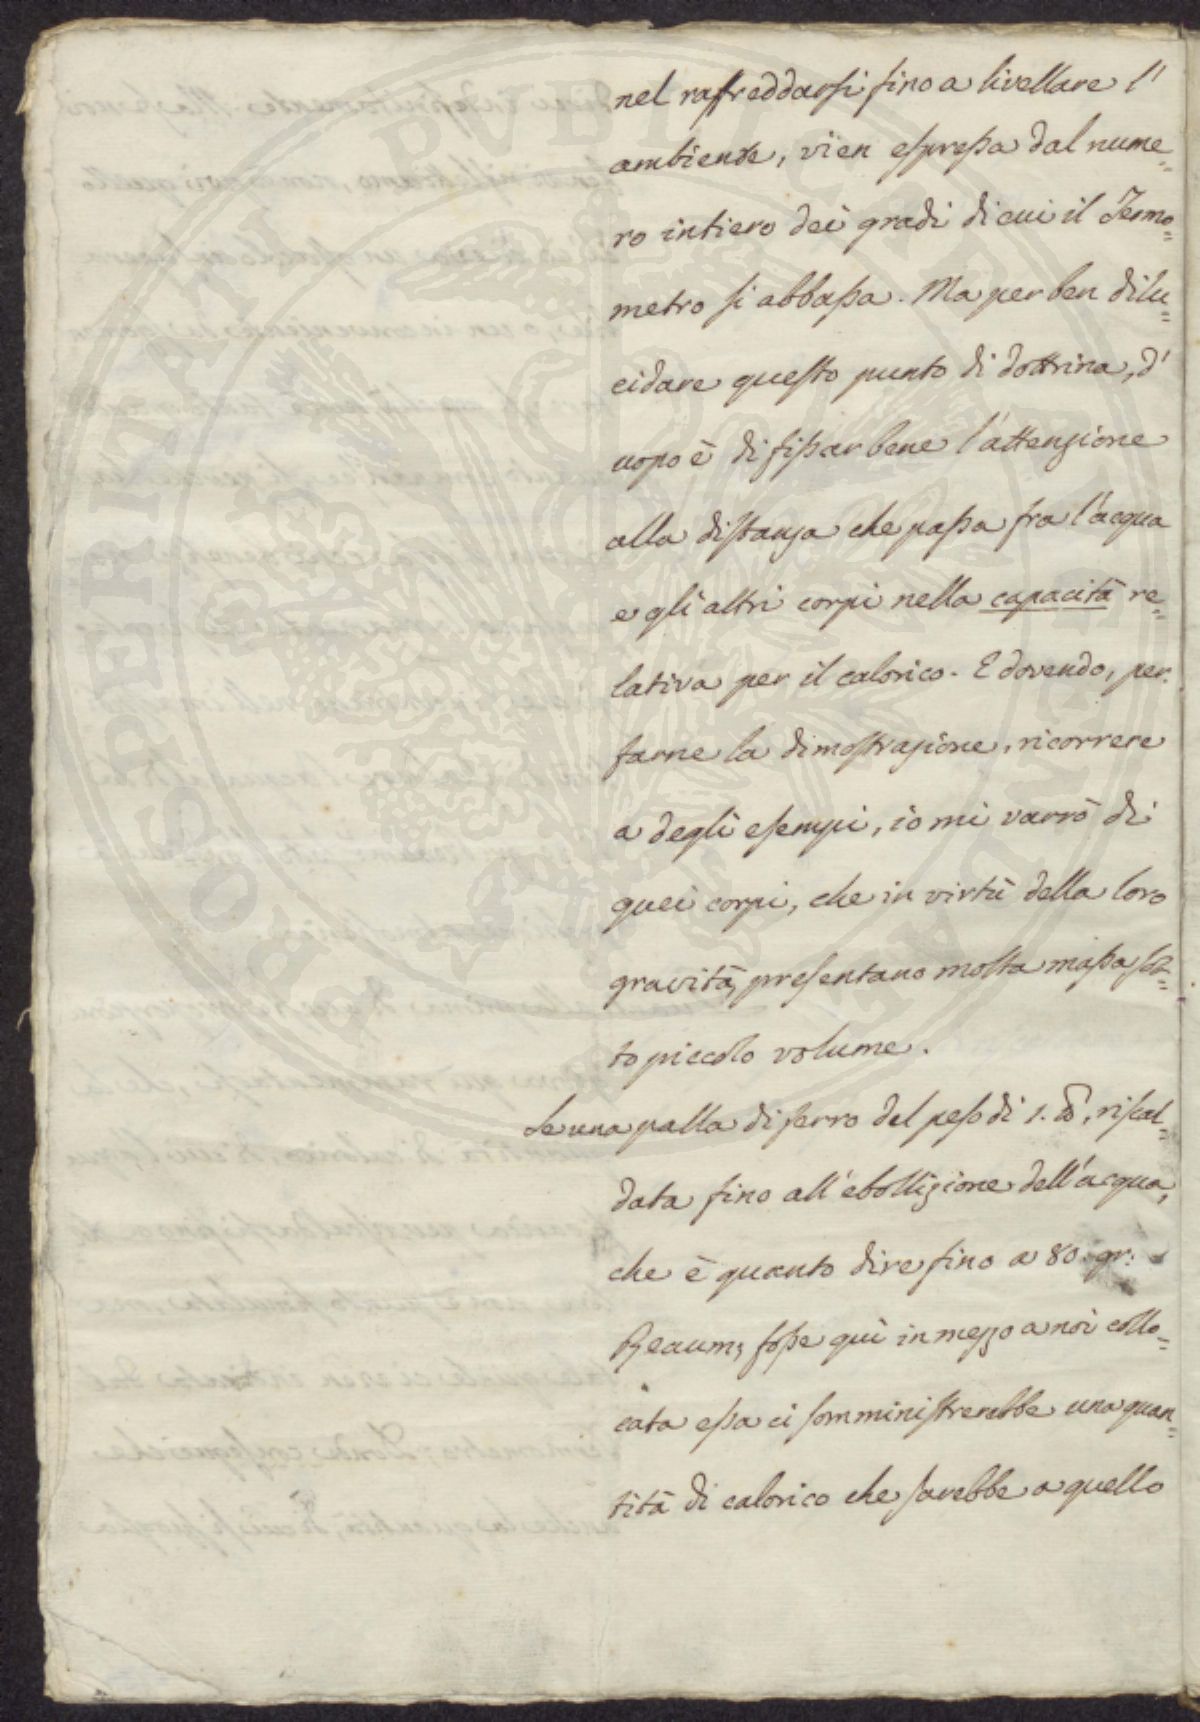 nel raffreddarsi fino a livellare l'
ambiente, vien espressa dal nume=
ro intiero dei gradi di cui il Termo=
metro si abbassa. Ma per ben dilu=
cidare questo punto di dottrina, d'
uopo è di fissar bene l'attenzione
alla distanza che passa fra l'acqua
e gli altri corpi nella capacità re=
lativa per il calorico. E dovendo, per
farne la dimostrazione, ricorrere
a degli esempi, io mi varrò di
quei corpi, che in virtù della loro
gravità, presentano molta massa sot=
to piccolo volume.
Se una palla di ferro del peso di 1. ℔, riscal=
data fino all'ebollizione dell'acqua,
che è quanto dire fino a 80. gr:
Reaum; fosse quì in mezzo a noi collo=
cata essa ci somministrerebbe una quan=
tità di calorico che sarebbe a quello
PROSPERITATI PVBLICAE AVGENDAE